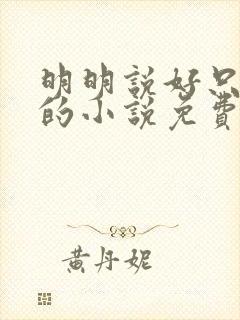 明明說好只
的小說免費
黃丹妮